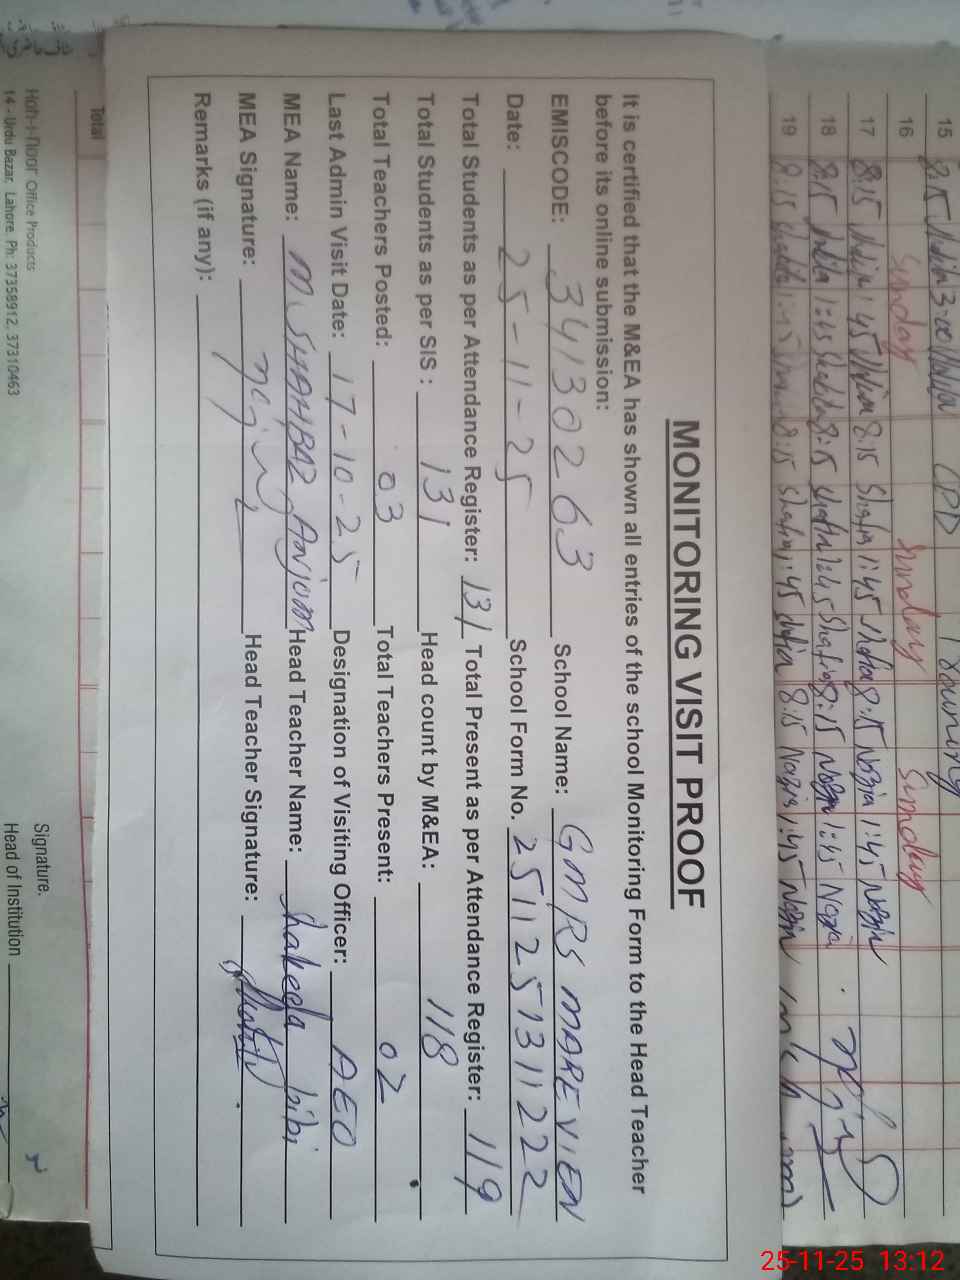 MONITORING VISIT PROOF
It is certified that the M&EA has shown all entries of the school Monitoring Form to the Head Teacher
before its online submission:
EMISCODE: 34130263 School Name: GMPS MAREVIEN
Date: 25-11-25 School Form No. 251125131122​2
Total Students as per Attendance Register: 131 Total Present as per Attendance Register: 119
Total Students as per SIS : 131 Head count by M&EA: 118
Total Teachers Posted: 03 Total Teachers Present: 02
Last Admin Visit Date: 17-10-25 Designation of Visiting Officer: AEO
MEA Name: M SHAHBAZ Anjom Head Teacher Name: Shakeela bibi
MEA Signature: Head Teacher Signature:
Remarks (if any):
15 8:15 3:00 CPD
16 Sunday Sunday Sunday
17 8:15 1:45 8:15 Shafia 1:45 Shafia 8:15 Nazia 1:45 Nazia
18 8:15 1:45 8:15 Shafia 1:45 Shafia 8:15 Nazia 1:45 Nazia
19 8:15 1:45 8:15 Shafia 1:45 Shafia 8:15 Nazia 1:45 Nazia
Total
Signature.
Head of Institution
Office Products
14 - Urdu Bazar, Lahore. Ph: 37358912, 37310463
25-11-25 13:12